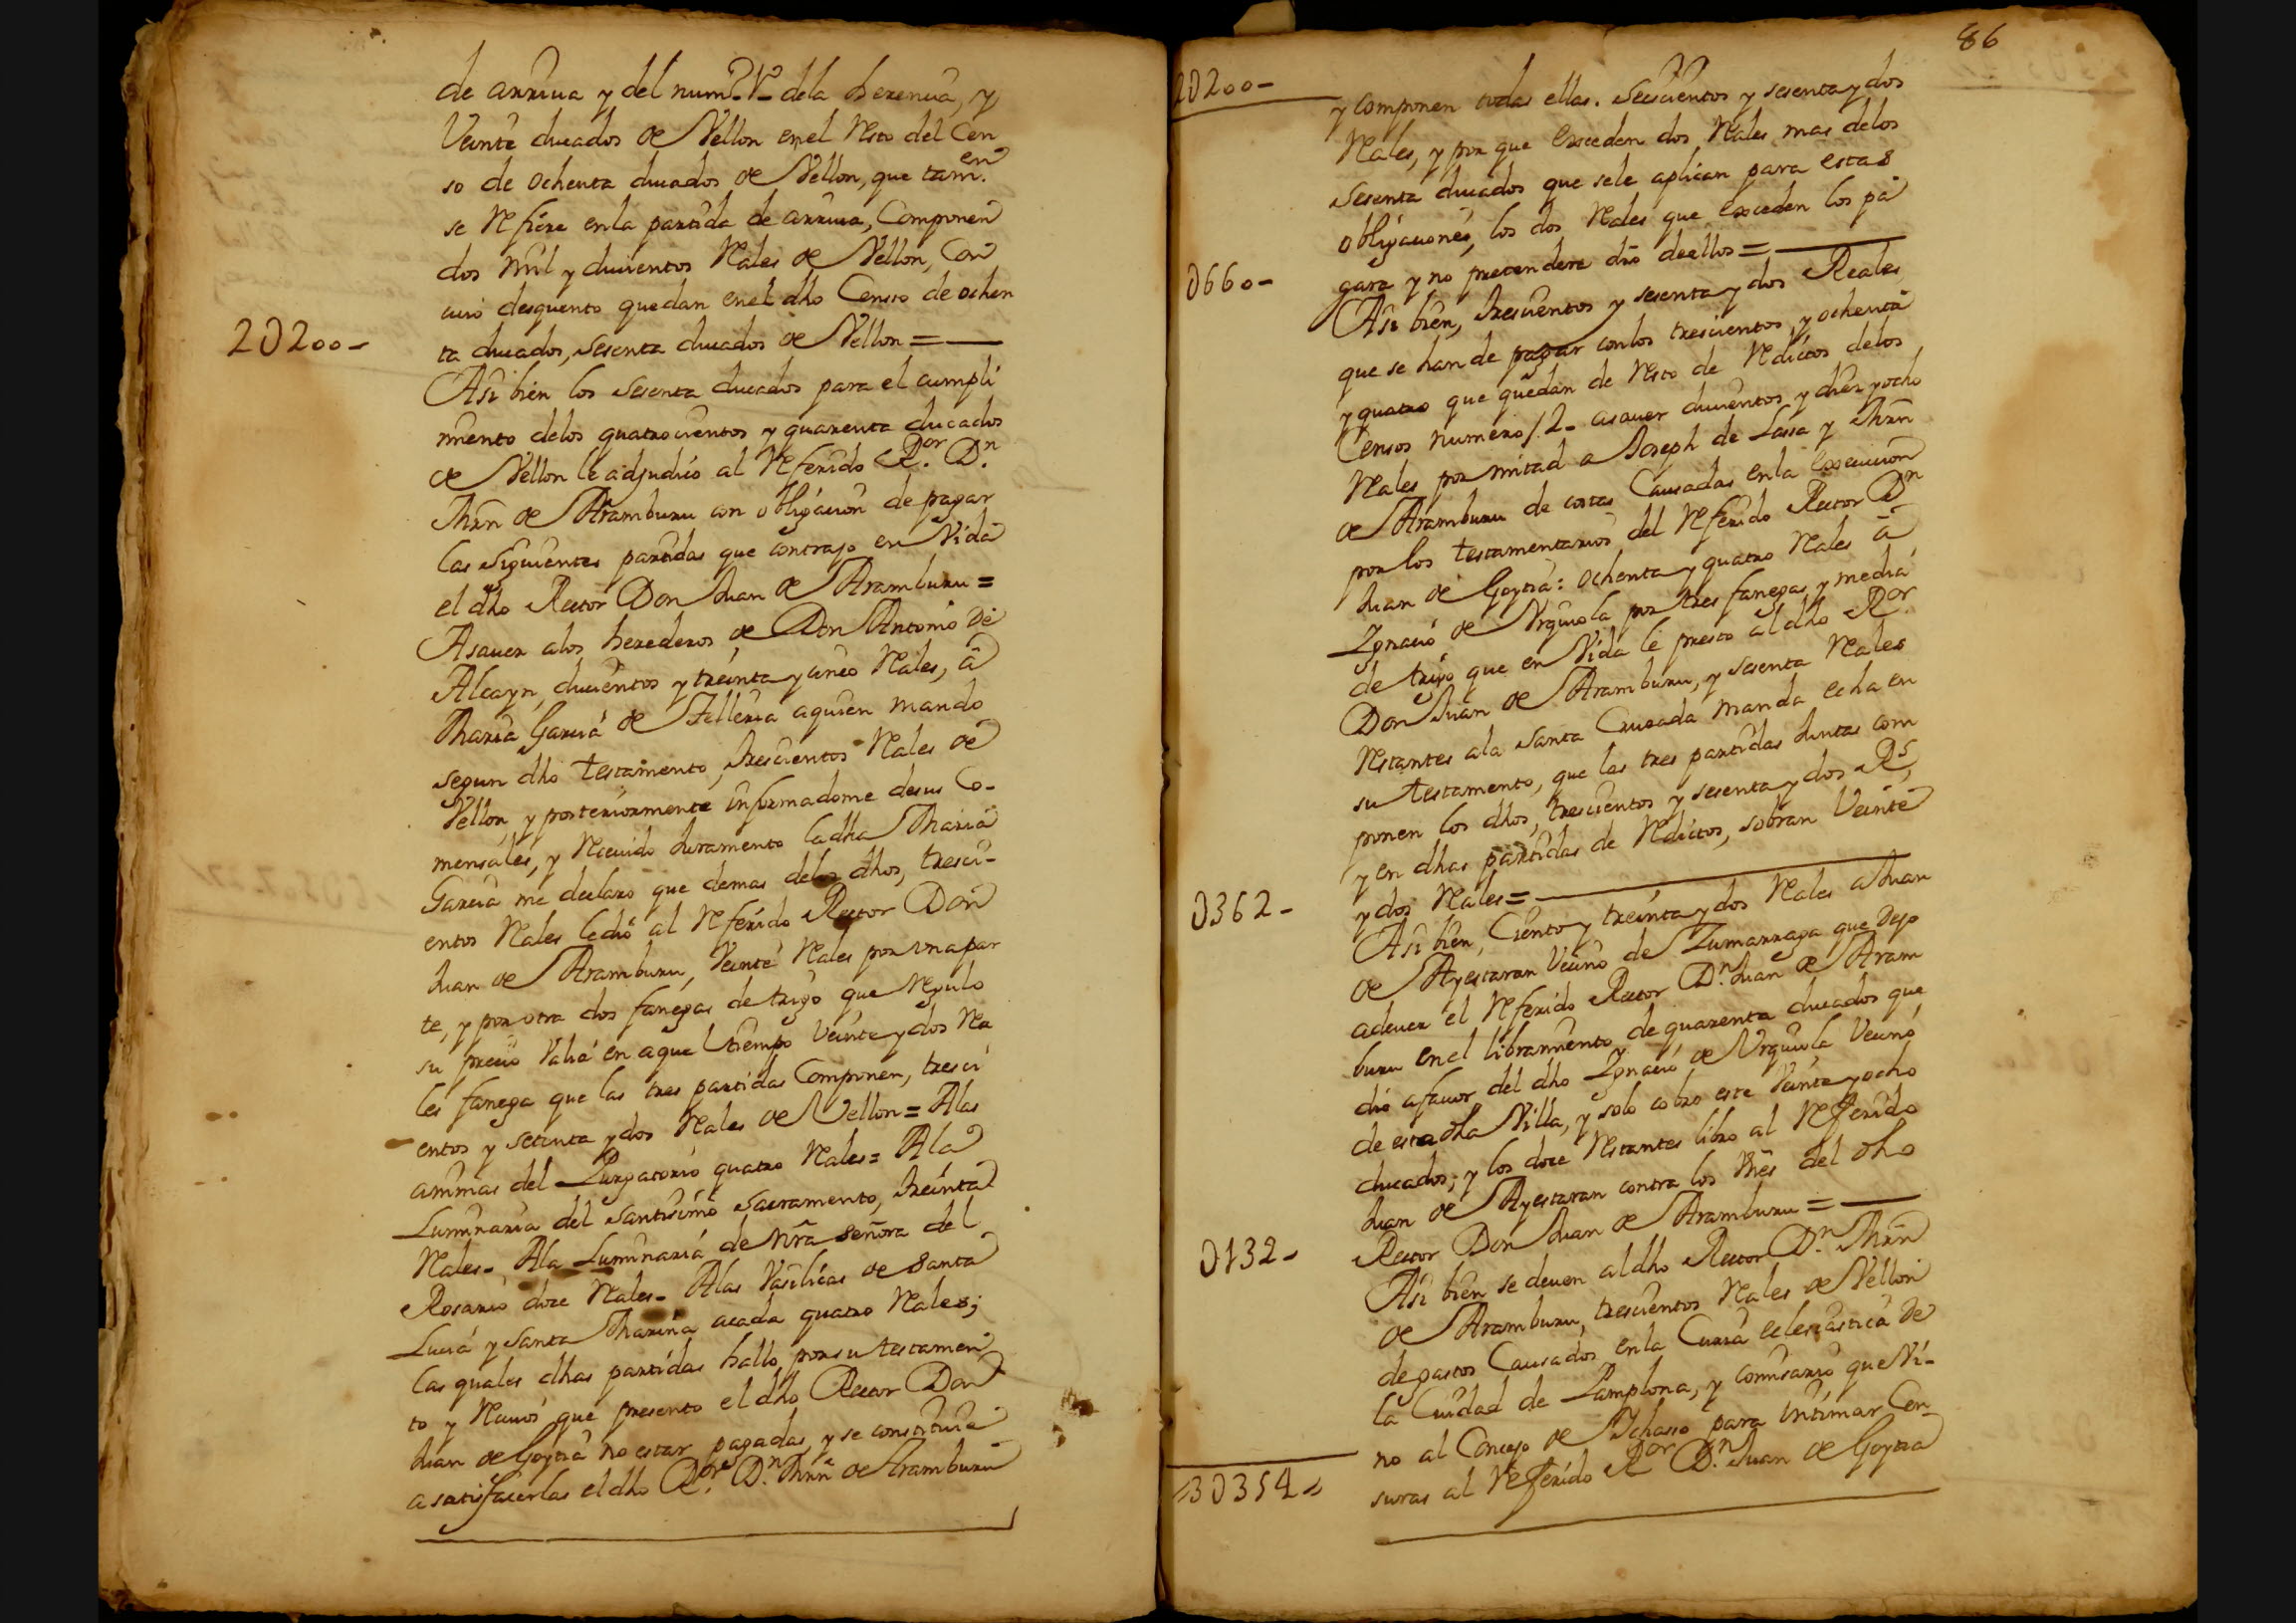 de arriua y del num.º V.º dela herencia, y
Veinte ducados de Vellon enel resto del Cen
so de ochenta ducados de Vellon, que tam.en
se refiere enla partida de arriua, Componen
dos mil y ducientos reales de Vellon, Con
cuio desquento quedan enel dho Censo de ochen
20200- ta ducados, sesenta ducados de Vellon =
Asi bien los sesenta ducados para el cumpli
miento delos quatrocientos y quarenta ducados
de Vellon le adjudico al referido R.or D.n
Mrn de Aramburu con obligacion de pagar
las siguientes partidas que contrajo en Vida
el dho Rector Don Juan de Aramburu =
Asauer alos herederos de Don Antonio de
Alcayn, ducientos y treinta y cinco reales, â
Maria Garcia de Telleria aquien mando
segun dho testamento, trescientos reales de
Vellon, y posteriormente informadome desus Co-
mensales, y receuido Juramento ladha Maria
Garcia me declaro que demas delos dhos, tresci-
entos reales ledió al referido Rector Don
Juan de Aramburu, Veinte reales por vna par
te, y por otra dos fanegas de trigo que regulo
su precio Valia en aquel tiempo Veinte y dos rea
les fanega que las tres partidas Componen, tresci
entos y setenta y dos reales de Vellon = Alas
animas del Purgatorio quatro reales = Ala
Luminaria del santisimo sacramento, treinta
reales - Ala Luminaria de nra señora del
Rosario doce reales - Alas Vasilicas de santa
Lucia y santa Marina acada quatro reales;
las quales dhas partidas hallo por su testamen
to y recuios que presento el dho Rector Don
Juan de Goytia no estar pagadas, y se constituie
a satisfacerlas el dho R.or D.n Mrn de Aramburu
86
20200-
y componen todas ellas. seiscientos y sesenta y dos
reales, y por que exceden dos reales mas delos
sesenta ducados que sele aplican para estas
obligaciones, los dos reales que exceden los pa
0660- gara y no pretendera dro deellos =
Asi bien, trescientos y sesenta y dos Reales
que se han de pagar conlos trescientos, y ochenta
y quatro que quedan de resto de reditos delos
Censos numero 12- asauer ducientos y diez y ocho
reales por mitad a Joseph de Lasa y Mrn
de Aramburu de costas Causadas enla execucion
por los testamentarios del referido Rector D.n
Juan de Goytia: ochenta y quatro reales â
Ignacio de Vrquiola por tres fanegas y media
de trigo que en Vida le presto al dho R.or
Don Juan de Aramburu, y sesenta reales
restantes ala santa Cruzada manda echa en
su testamento, que las tres partidas Juntas com
ponen los dhos, trescientos y sesenta y dos R.s,
y en dhas partidas de reditos, sobran Veinte
0362- y dos reales =
Asi bien, Ciento y treinta y dos reales a Juan
de Ayestaran Vecino de Zumarraga que dejo
adeuer el referido Rector D.n Juan de Aram
buru en el libramiento de quarenta ducados que
dio afauor del dho Ignacio de Vrquiola Vecino
de esta dha Villa, y solo cobro este Veinte y ocho
ducados; y los doce restantes libro al referido
Juan de Ayestaran contra los vnes del dho
Rector Don Juan de Aramburu =
0132-
Asi bien se deuen al dho Rector D.n Mrn
de Aramburu, trescientos reales de Vellon
de gastos Causados enla Curia eclesiastica de
la Ciudad de Pamplona, y comisario que Vi-
no al Concejo de Ychaso para intimar Cen
suras al referido R.or D.n Juan de Goytia
30354-